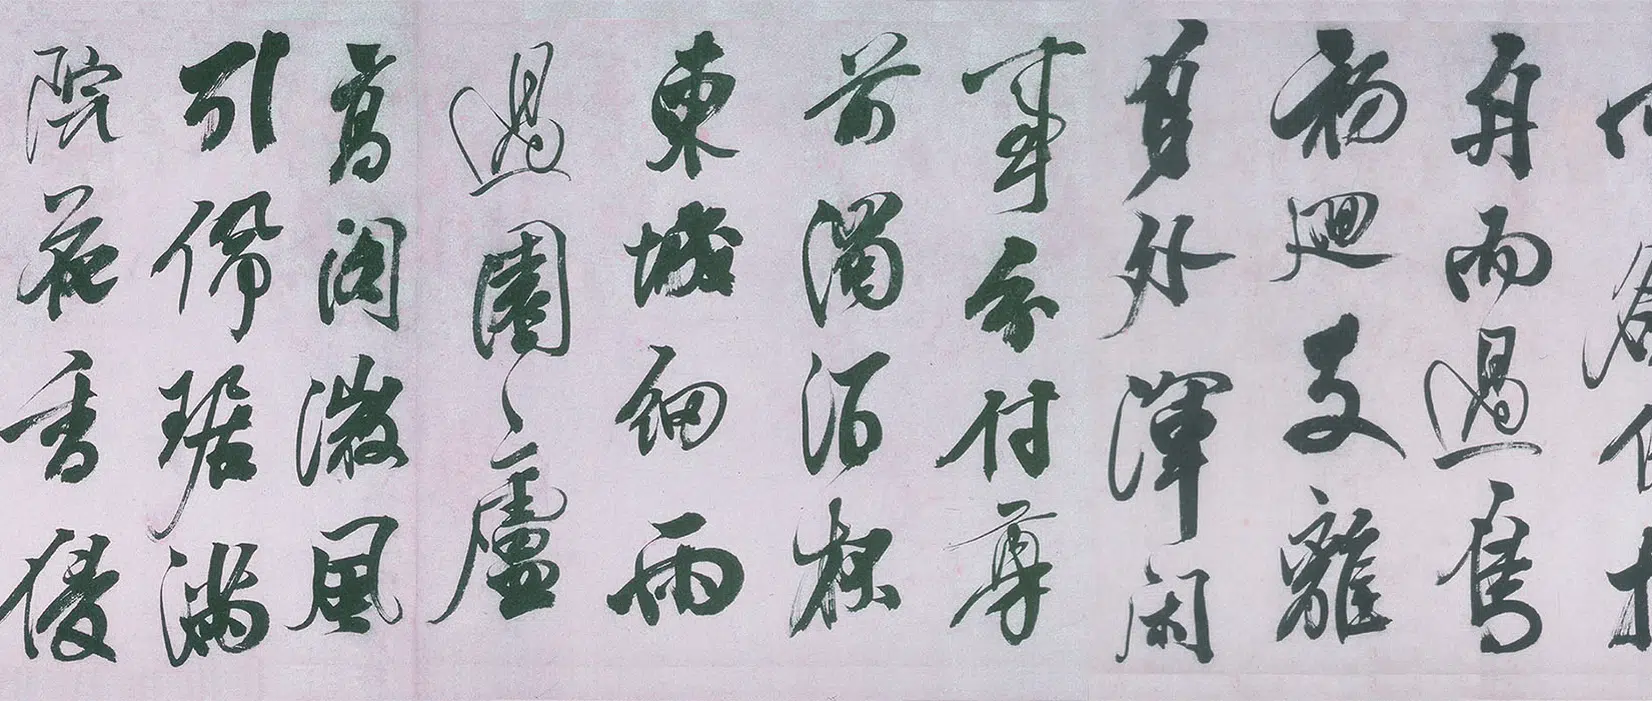 舟雨過鴈
初迴支離
身外渾閑
事分付尊
前濁酒杯
東城細雨
過園廬
高閣微風
引佩琚滿
院花香優